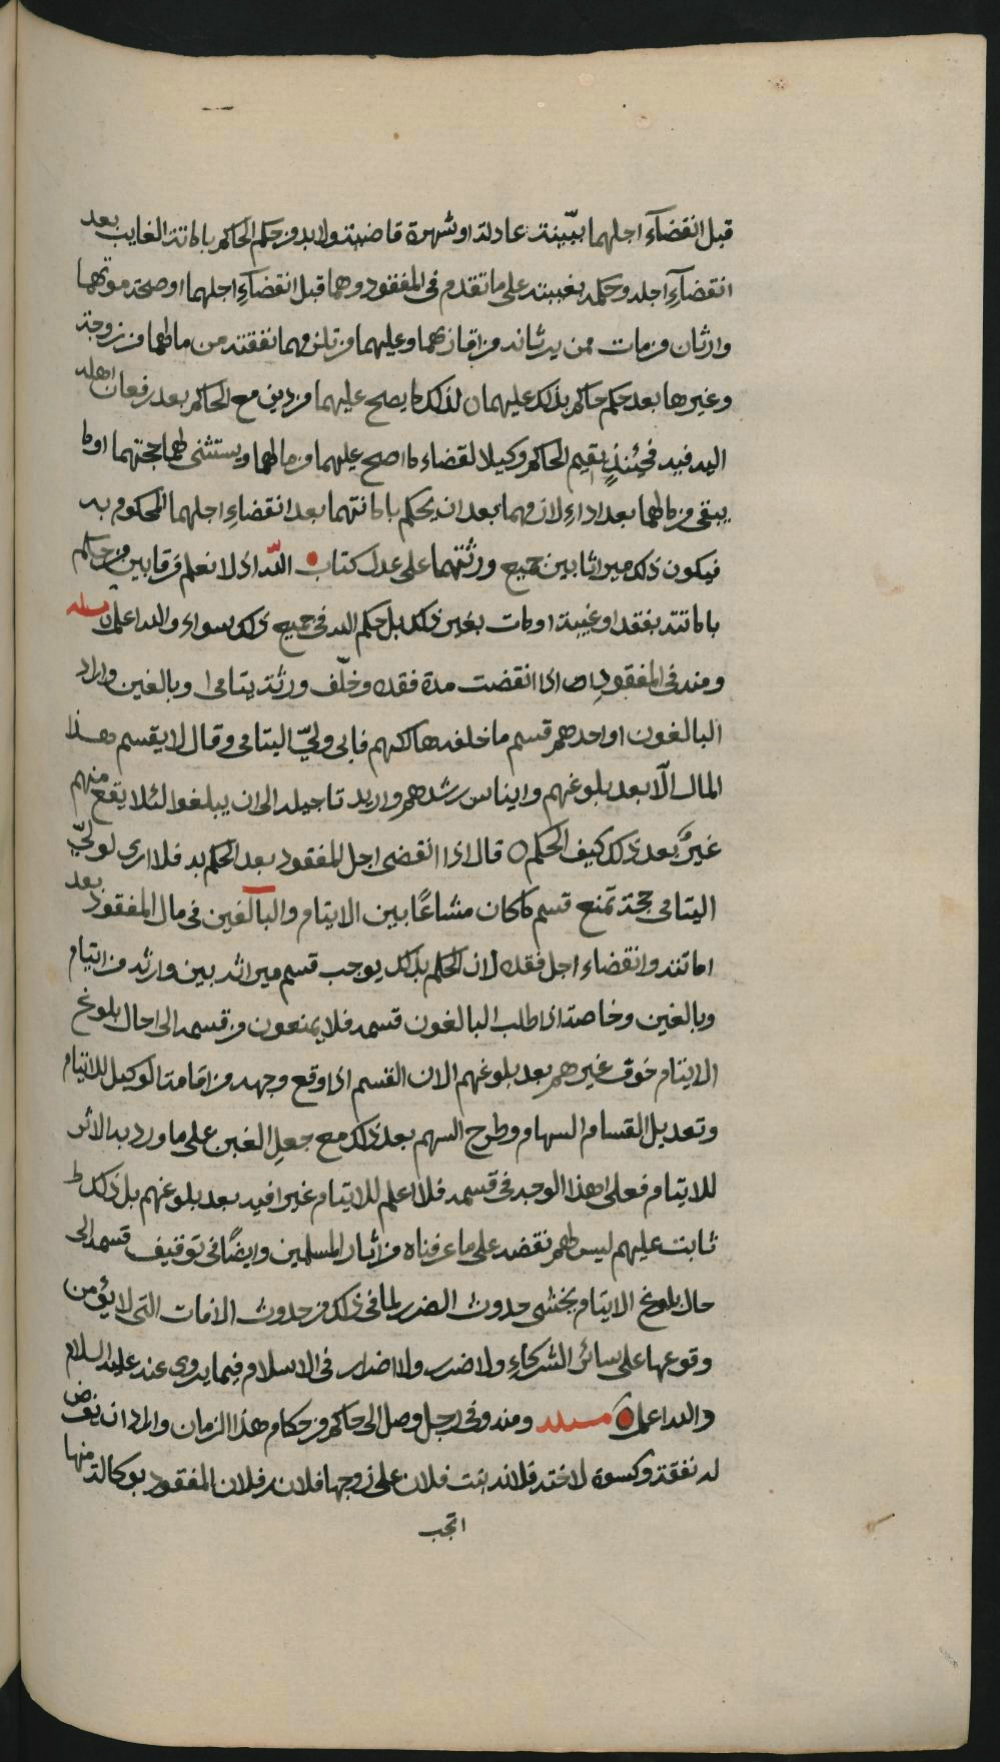 قبل انقضآء اجلهما ببّينة عادلة او شهرة قاضية ولا بد من حكم الحاكم باماتة الغايب بعد
انقضآءِ اجله وحكمه بغيبته على ما تقدم فى المفقود وهما قبل انقضآءِ اجلهما او صحة موتهما
وارثان من مات ممن يرثانه من اقاربهما وعليهما من تلزمهما نفقته من مالهما من زوجة
وغيرها بعد حكم حاكم بذلك عليهما وكذلك ما يصح عليهما من دين مع الحاكم بعد رفعان اهله
اليه فيه فحينئذٍ يقيم الحاكم وكيلا لقضاء ما صح عليهما من مالهما ويستثنى لهما حجتهما او ما
يبقى من مالهما بعد اداءِ لازمهما بعد ان يحكم باماتتهما بعد انقضاءِ اجلهما المحكوم به
فيكون ذلك ميراثا بين جميع ورثتهما على عدل كتاب الله اذ لا نعلم فرقا بين من حكم
باماتته بفقد او غيبة او مات بغير ذلك بل حكم الله فى جميع ذلك سواء والله اعلم مسئله
ومنه فى المفقود اذا انقضت مدة فقده وخلّف ورثة يتامى وبالغين واراد
البالغون او احدهم قسم ما خلفه هالكهم فابى وليّ اليتامى وقال لا يقسم هذا
المال الّا بعد بلوغهم وايناس رشدهم واريد تاجيله الى ان يبلغوا لئلا يقع منهم
غيرٌ بعد ذلك كيف الحكم قال اذا انقضى اجل المفقود بعد الحكم به فلا ارى لوليّ
اليتامى حجة تمنع قسم ما كان مشاعًا بين الايتام والبالغين فى مال المفقود بعد
اماتته وانقضاء اجل فقده لان الحكم بذلك يوجب قسم ميراثه بين وارثه من ايتام
وبالغين وخاصة اذا طلب البالغون قسمه فلا يمنعون من قسمه الى حال بلوغ
الايتام خوف غيرهم بعد بلوغهم الان القسم اذا وقع وجهه من اقامة الوكيل للايتام
وتعديل القسام السهام وطرح السهم بعد ذلك مع جعل الغبن على ما ورد به الاثر
للايتام فعلى هذا الوجه فى قسمه فلا اعلم للايتام غيرا فيه بعد بلوغهم بل ذلك
ثابت عليهم ليس لهم نقضه على ما عرفناه من اثار المسلمين وايضًا فى توقيف قسمه الى
حال بلوغ الايتام يخشى حدوث الضرر لما فى ذلك من حدوث الافات التى لا يؤمن
وقوعها على سائر الشركاءِ ولا ضرر ولا اضرار فى الاسلام فيما يروى عنه عليه السلام
والله اعلم مسئله ومنه وفى رجل وصل الى حاكم من حكام هذا الزمان واراد ان يفرض
له نفقة وكسوة لاخته فلانه بنت فلان على زوجها فلان بن فلان المفقود بوكالة منها
اتجب